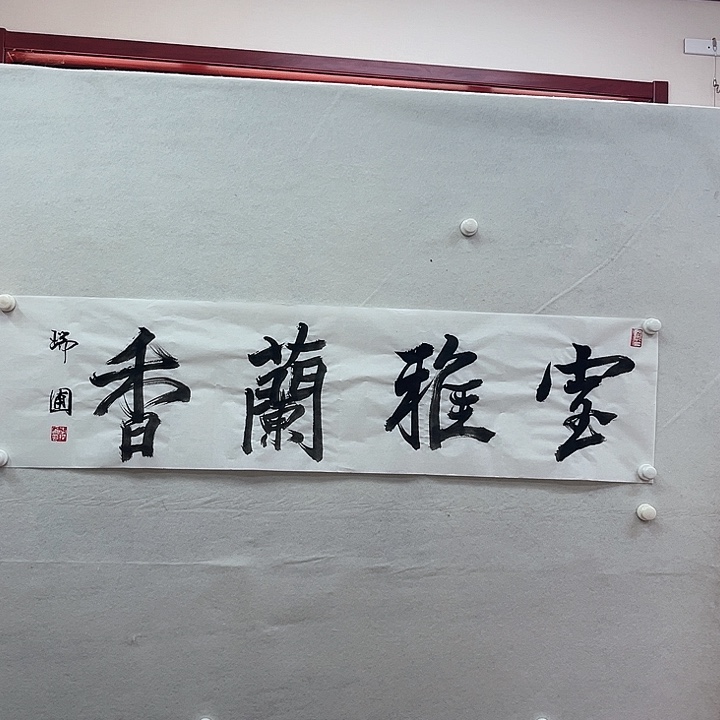 室雅蘭香
瑞圃